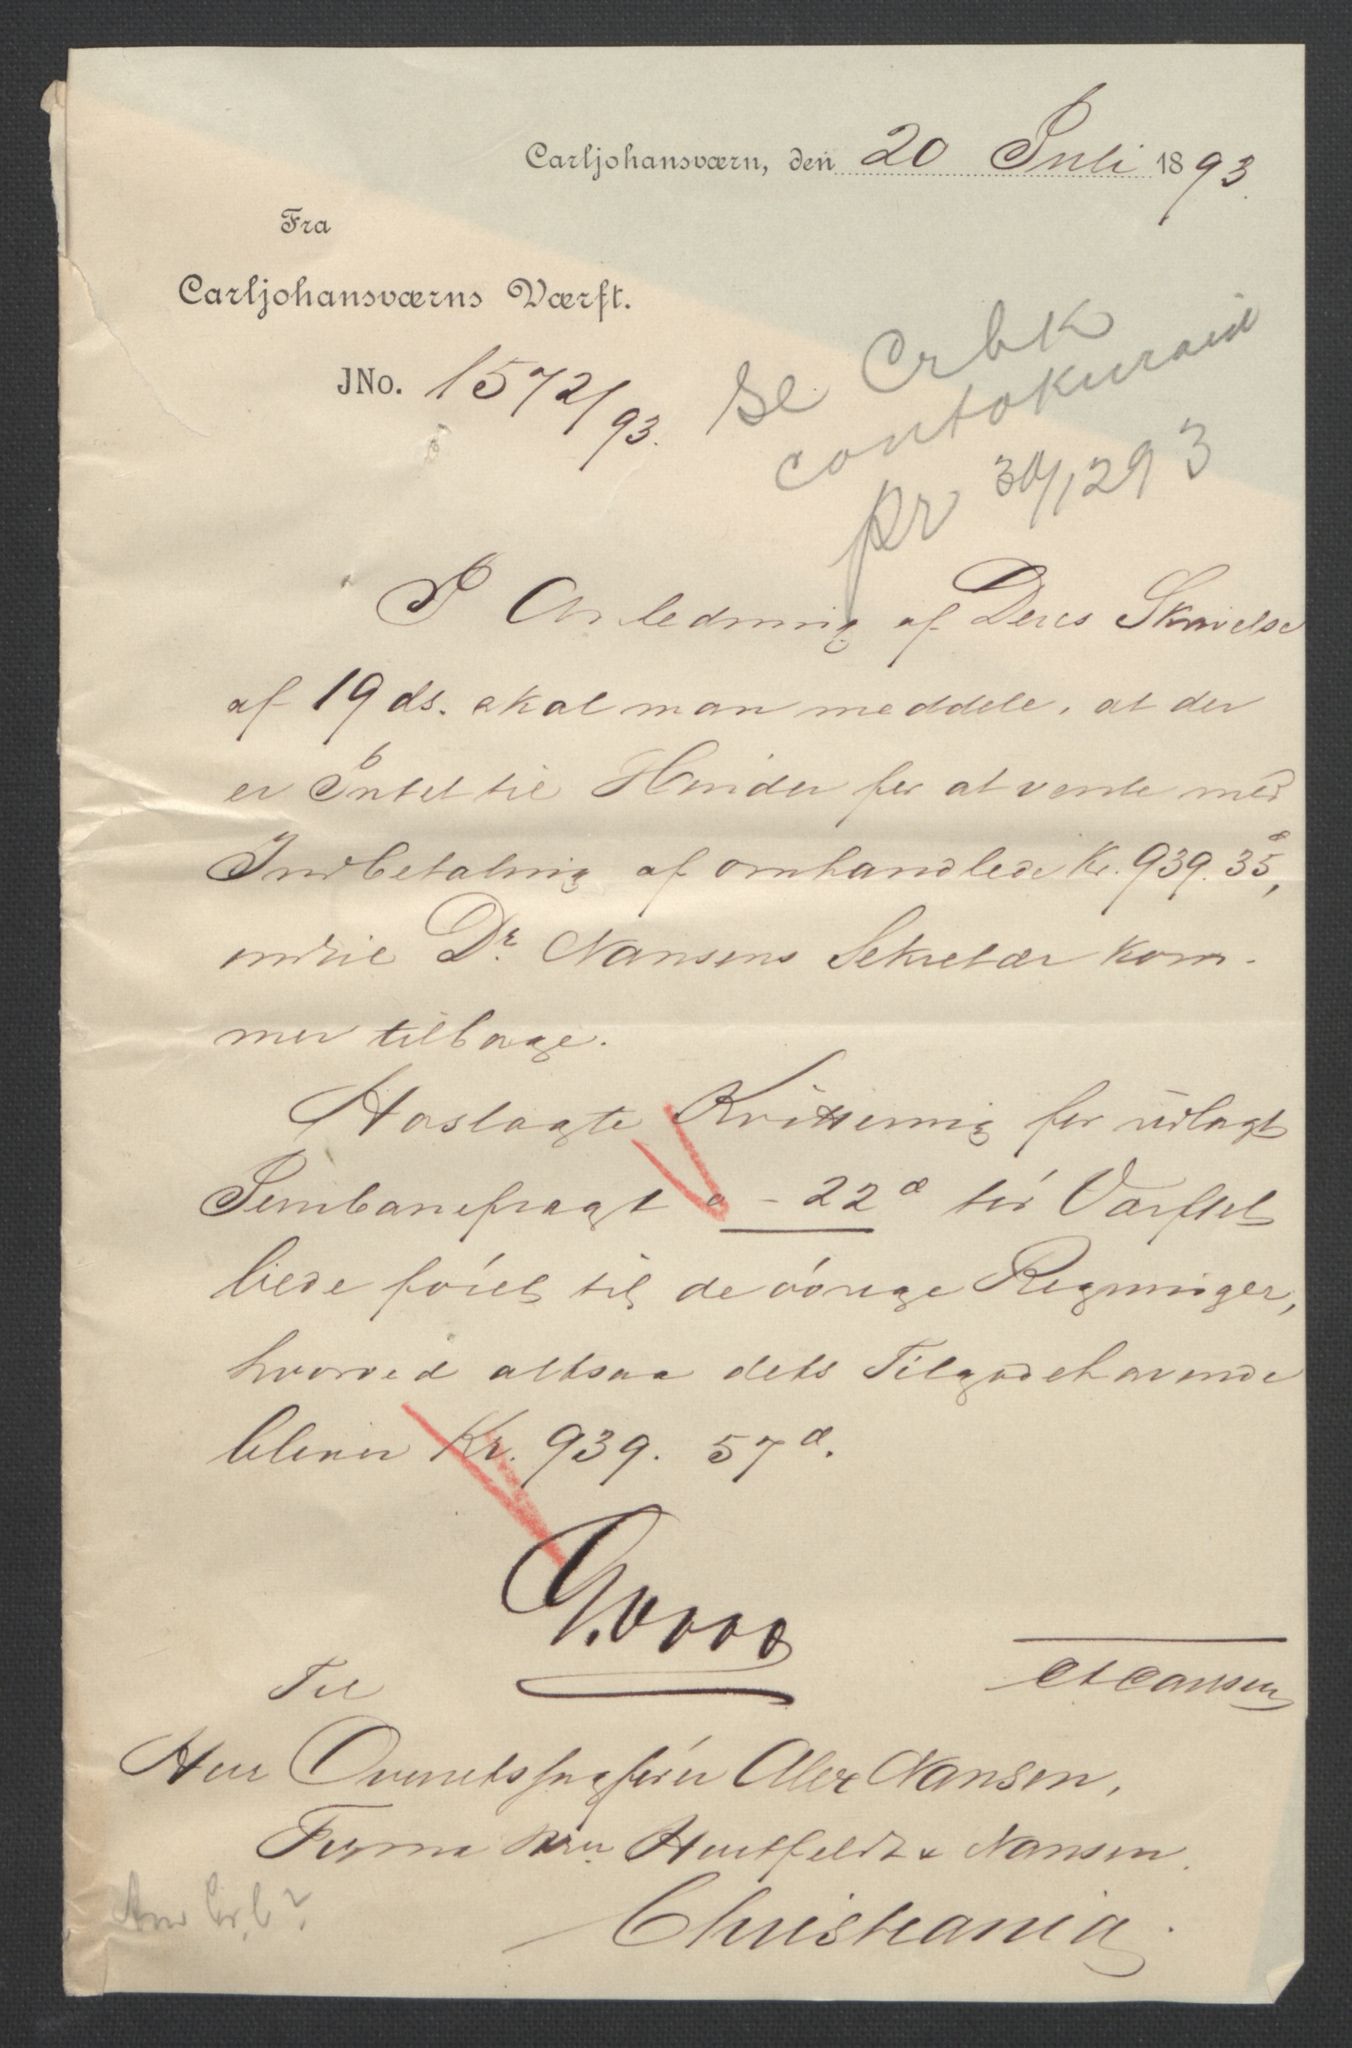 Carljohansværn, den 20 Juli 1893.
Fra
Carljohansværns Værft.
JNo. 1572/93.
se Crbk
contokurain
pr 30/12 93
I Anledning af Deres Skrivelse
af 19 ds. skal man meddele, at der
er Intet til Hinder for at vente med
Indbetaling af omhandlede Kr. 939.35,
indtil Dr. Nansens Sekretær kom-
mer tilbage.
Hoslagte Kvittering for udlagt
Jernbanefragt - 22 tør Værftet
bede føiet til de øvrige Regninger,
hvorved altsaa dets Tilgodehavende
bliver Kr. 939. 57.
Til
Herr Overretssagfører Alex Nansen,
Firma Huitfeldt & Nansen.
Christiania.